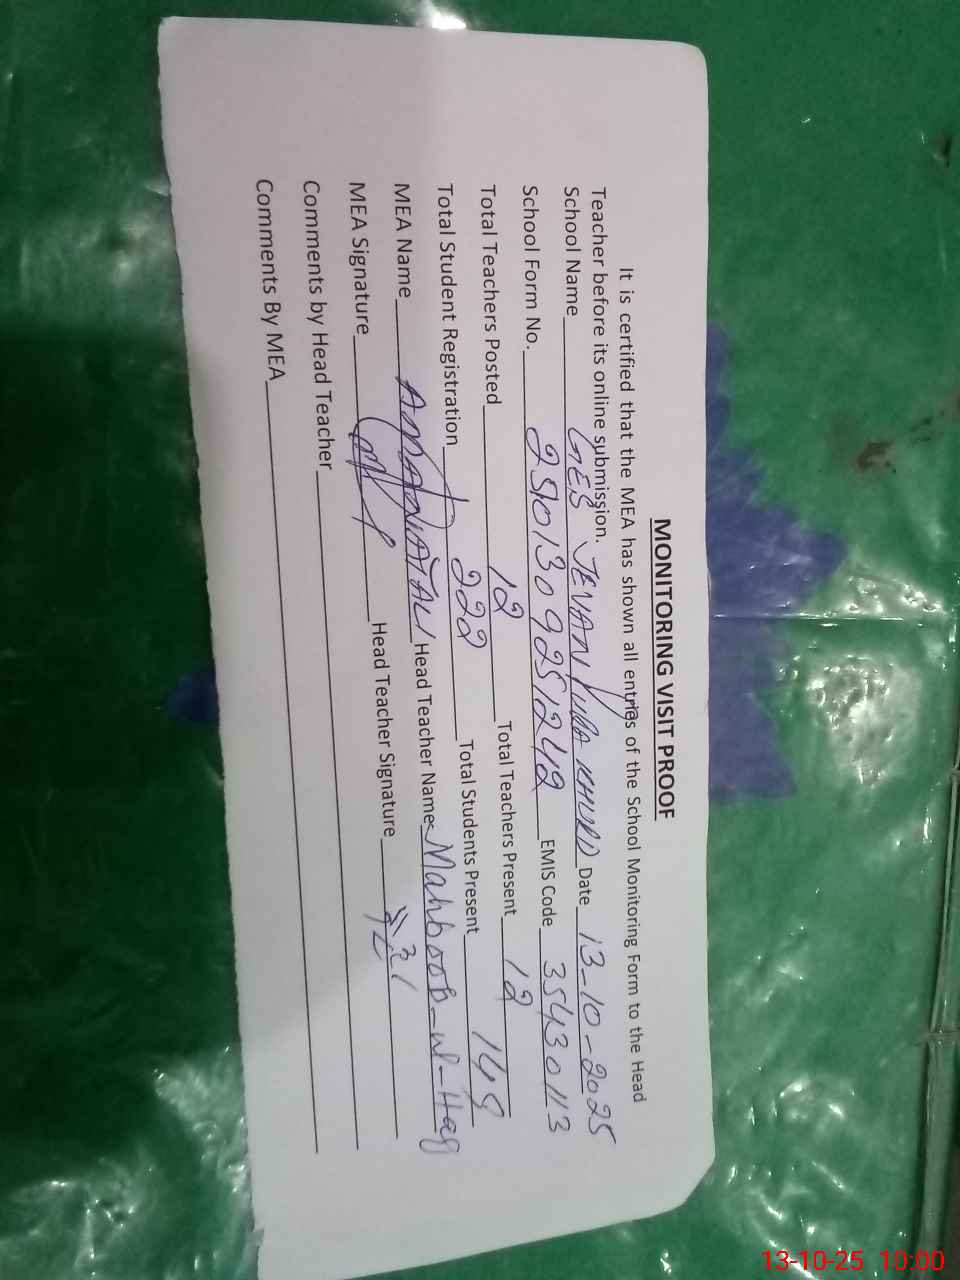 MONITORING VISIT PROOF
It is certified that the MEA has shown all entries of the School Monitoring Form to the Head
Teacher before its online submission.
School Name GES JEVAN PURA KHURD Date 13-10-2025
School Form No. 25101309251242 EMIS Code 35430113
Total Teachers Posted 12 Total Teachers Present 12
Total Student Registration 222 Total Students Present 148
MEA Name Head Teacher Name Mahboob-ul-Haq
MEA Signature Head Teacher Signature
Comments by Head Teacher
Comments By MEA
13-10-25 10:00